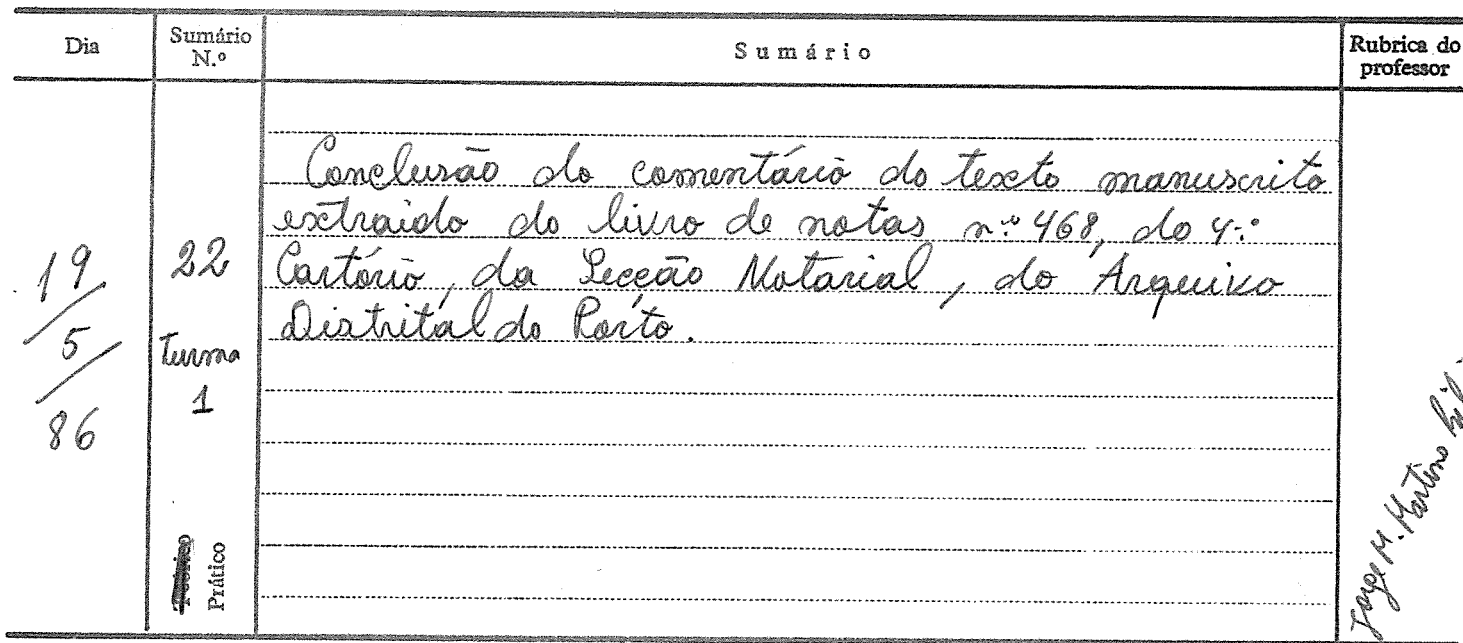 Dia
Sumário
N.º
Sumário
Rubrica do
professor
19
/
5
/
86
22
Turma
1
Prático
Conclusão do comentário do texto manuscrito
extraido do livro de notas n.º 468, do 4.º
Cartório, da Secção Notarial, do Arquivo
Distrital do Porto.
Jorge M. Martins